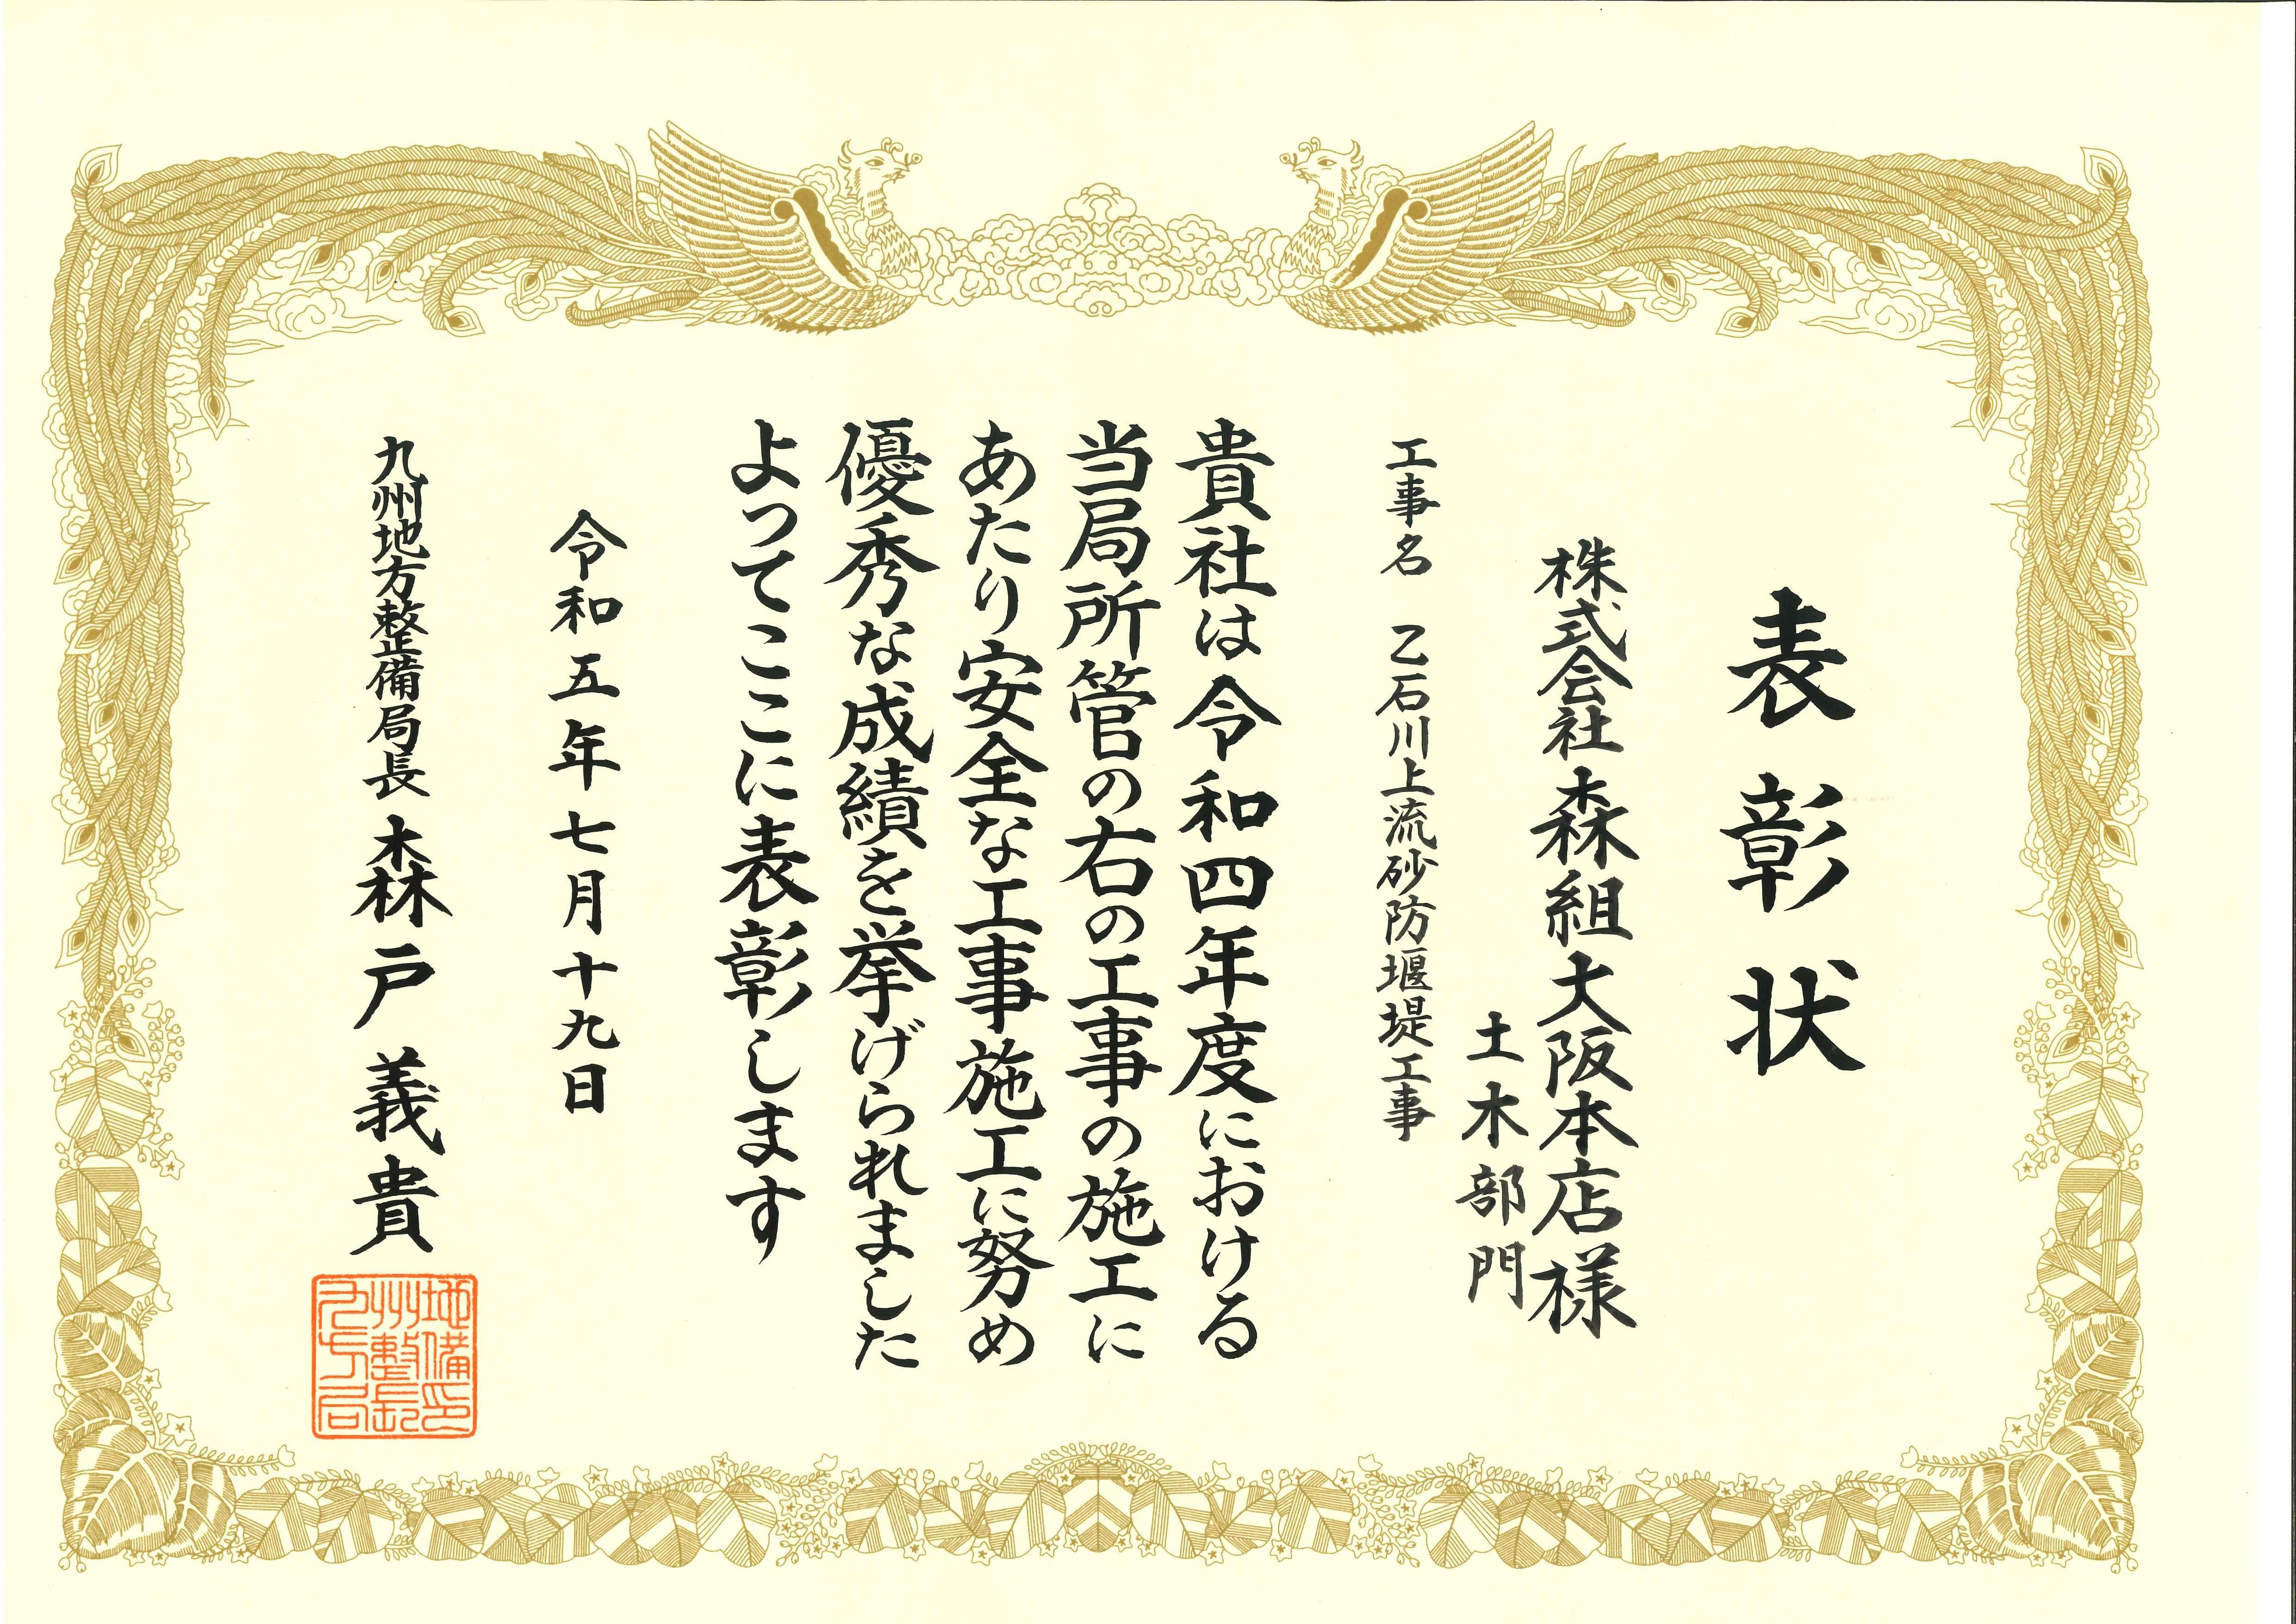 表彰状
株式会社森組大阪本店様
土木部門
工事名 乙石川上流砂防堰堤工事
貴社は令和四年度における
当局所管の右の工事の施工に
あたり安全な工事施工に努め
優秀な成績を挙げられました
よってここに表彰します
令和五年七月十九日
九州地方整備局長 森戸義貴
地備印
州整長
九方局